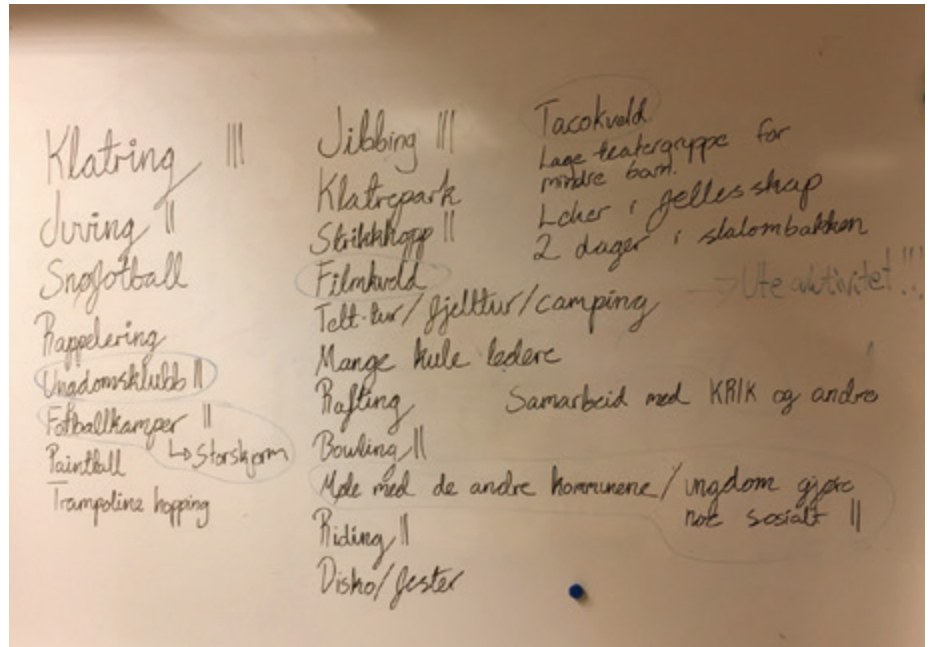 Klatring |||
Juving ||
Snøfotball
Rappelering
Ungdomsklubb ||
Fotballkamper ||
↳ Storskjerm
Paintball
Trampoline hopping
Jibbing |||
Klatrepark
Strikkhopp ||
Filmkveld
Telt-tur/fjelltur/camping
Mange kule ledere
Rafting
Bowling ||
Møte med de andre kommunene/ungdom gjøre
noe sosialt ||
Riding ||
Disko/fester
Tacokveld
Lage teatergruppe for
mindre barn.
Leker i fellesskap
2 dager i slalombakken
→ Ute aktivitet!!!
Samarbeid med KRIK og andre